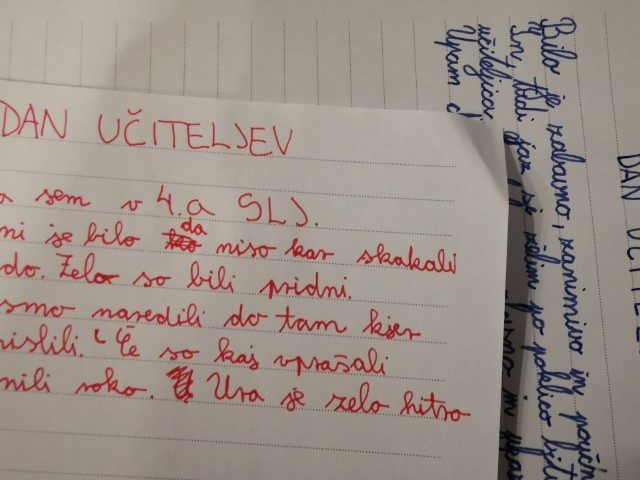 DAN UČITELJEV
a sem v 4.a SLJ.
ni se bilo da niso kar skakali
do. Zelo so bili pridni.
smo naredili do tam kjer
islili. Če so kaj vprašali
nili roko. Ura je zelo hitro
Bilo je zabavno, zanimivo in poučn
in, tudi jaz si želim po poklicu
učiteljica.
Upam d
DAN UČITE